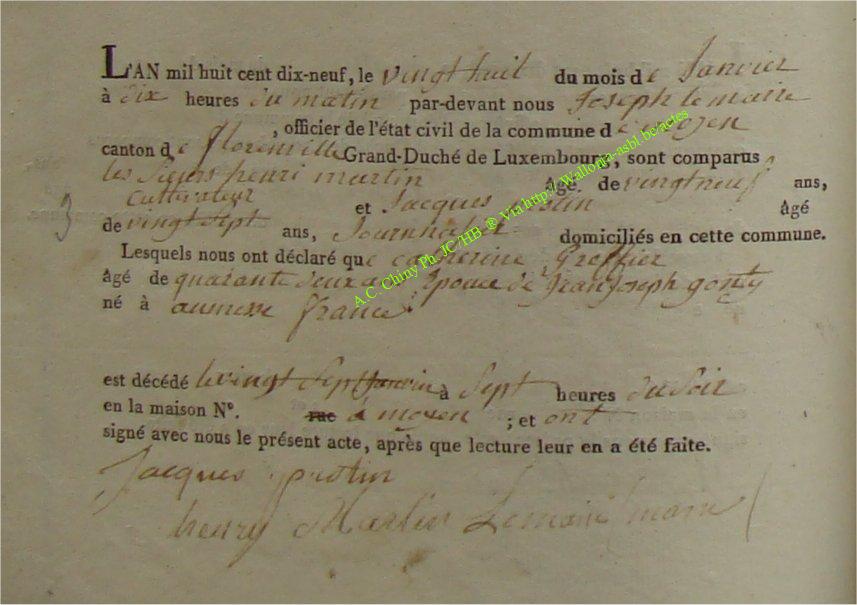 L'AN mil huit cent dix-neuf, le vingt huit du mois de Janvier
à dix heures du matin par-devant nous Joseph lemaire
, officier de l'état civil de la commune de moyen
canton de florenville Grand-Duché de Luxembourg, sont comparus
les Sieurs henri martin Agé de vingt neuf ans,
Cultivateur et Jacques Âgé
3
de vingt sept ans, Journalier domiciliés en cette commune.
Lesquels nous ont déclaré que catherine Greffier
Âgé de quarante deux ans Epouse de Jean Joseph
né à france
est décédé le vingt Sept Janvier à Sept heures du Soir
en la maison N°. rue à moyen ; et ont
signé avec nous le présent acte, après que lecture leur en a été faite.
Jacques
henry Martin Lemaire maire
A.C. Chiny Ph. JC/HB ® Via http://Wallonia-asbl.be/actes